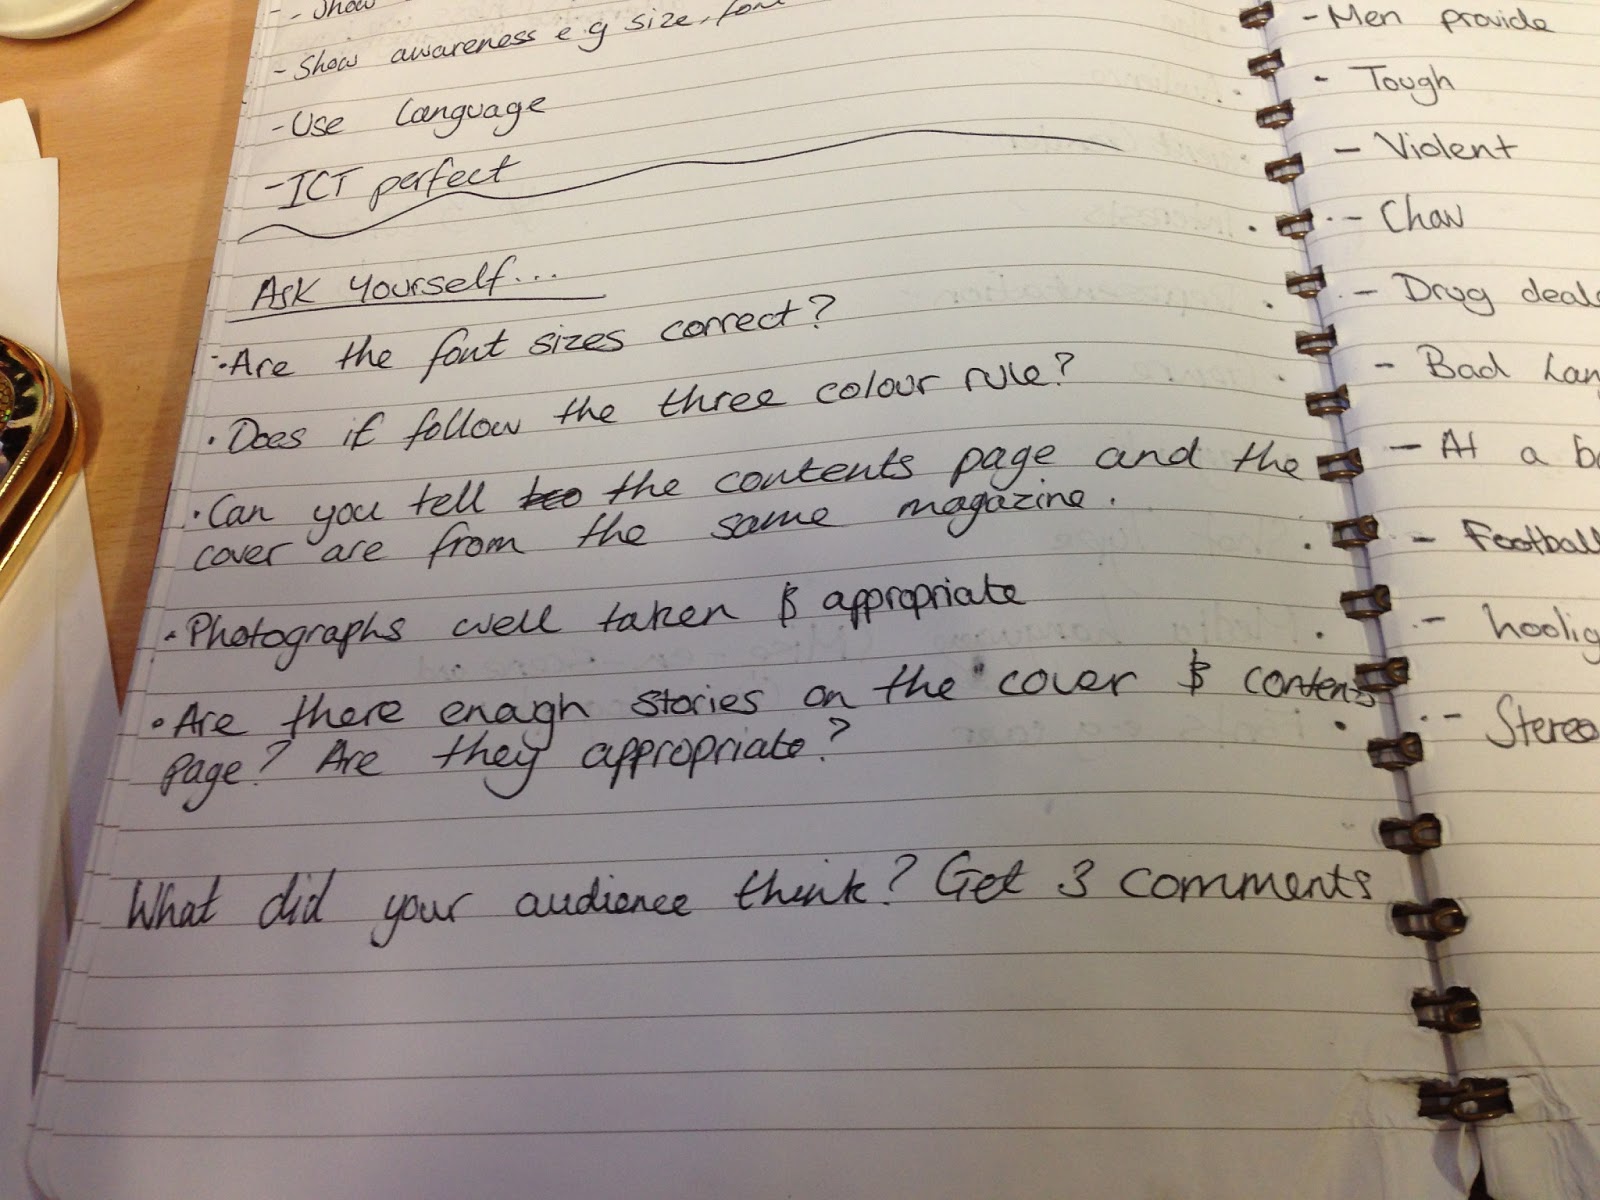 - Show
- Show awareness e g size, font
- Use language
- ICT perfect
Ask yourself...
• Are the font sizes correct?
• Does it follow the three colour rule?
• Can you tell the contents page and the
cover are from the same magazine.
• Photographs well taken & appropriate
• Are there enough stories on the cover & contents
page? Are they appropriate?
What did your audience think? Get 3 comments
- Men provide
- Tough
- Violent
- Chav
- Drug
- Bad
- At a
- Football
-
-